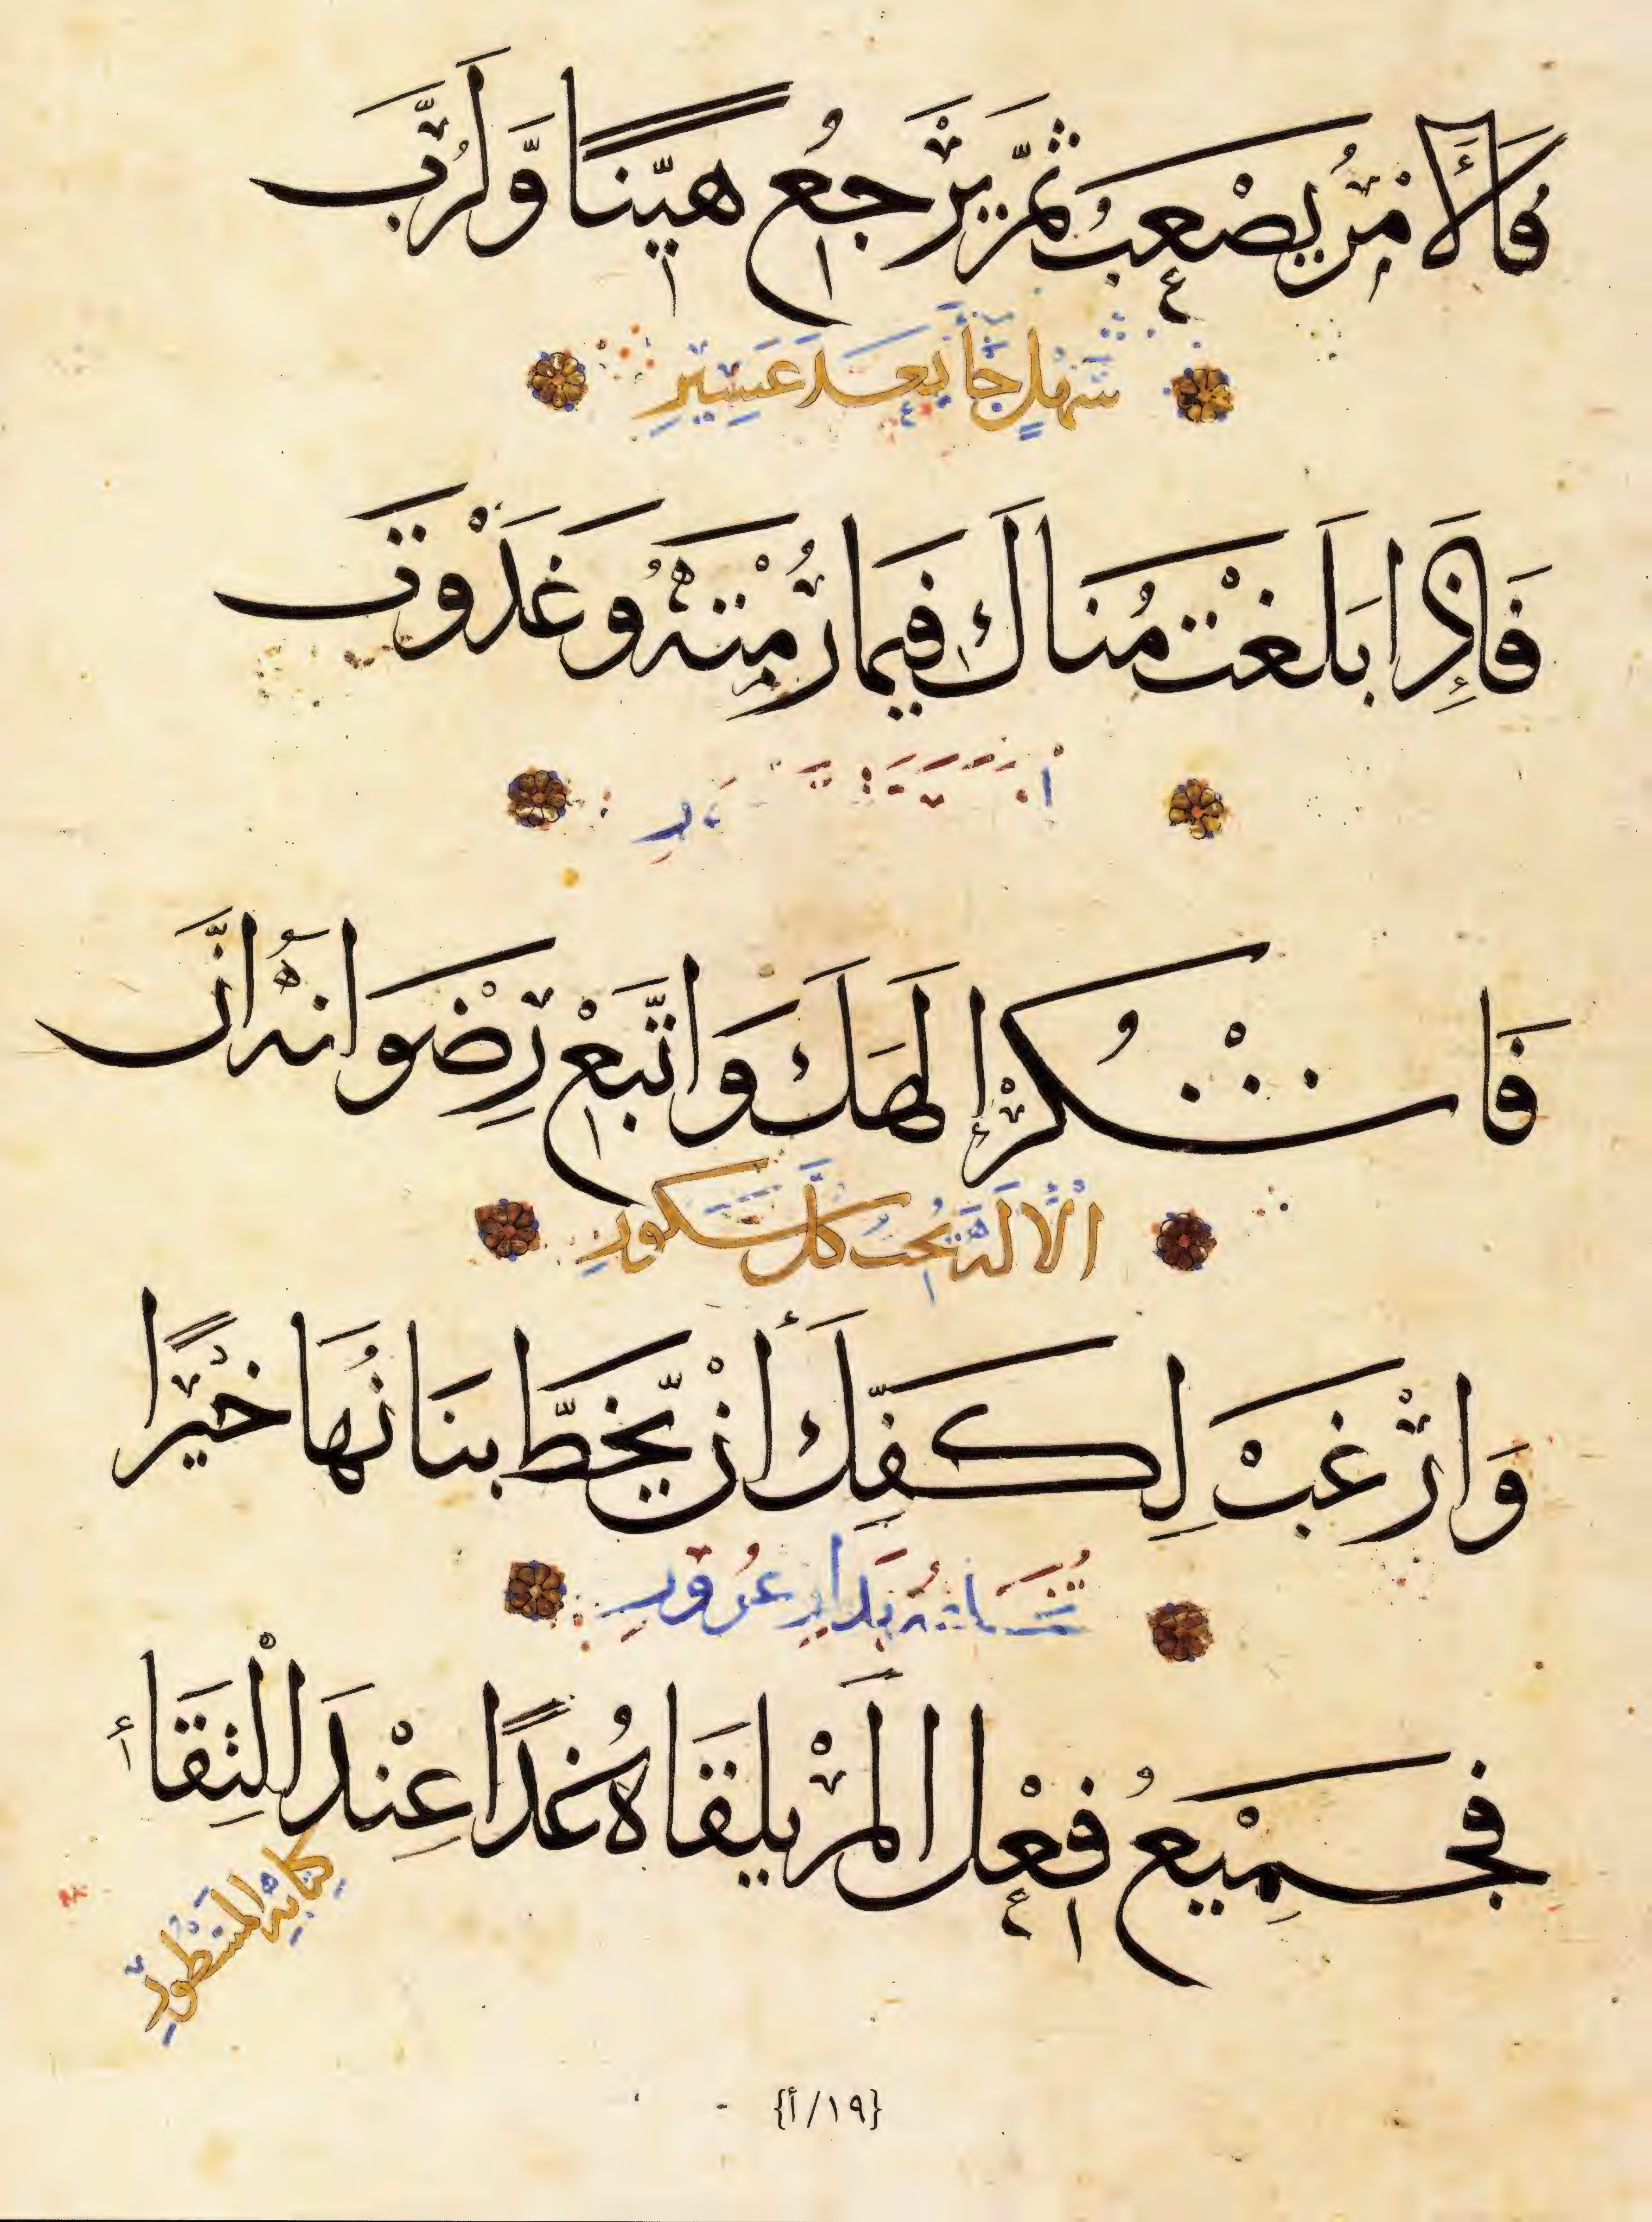 فَالأَمْرُ يَصْعُبُ ثُمَّ يَرْجِعُ هَيِّنًا وَّلَرُبَّ
سَهْلٍ جَاءَ بَعْدَ عَسِيرِ
فَإِذَا بَلَغْتَ مُنَاكَ فِيمَا رُمْتَهُ وَغَدَوْتَ
فَاشْكُرْ إِلَهَكَ وَاتَّبِعْ رِضْوَانَهُ إِنَّ
الْإِلَهَ يُحِبُّ كُلَّ شَكُورِ
وَارْغَبْ لِكَفِّكَ أَنْ يَّخُطَّ بَنَانُهَا خَيْرًا
تُخَلِّفُهُ بِدَارِ غُرُورِ
فَجَمِيْعُ فِعْلِ الْمَرْءِ يَلْقَاهُ غَدًا عِنْدَ الْتِقَاءِ
كِتَابِهِ الْمَسْطُورِ
{١٩/أ}